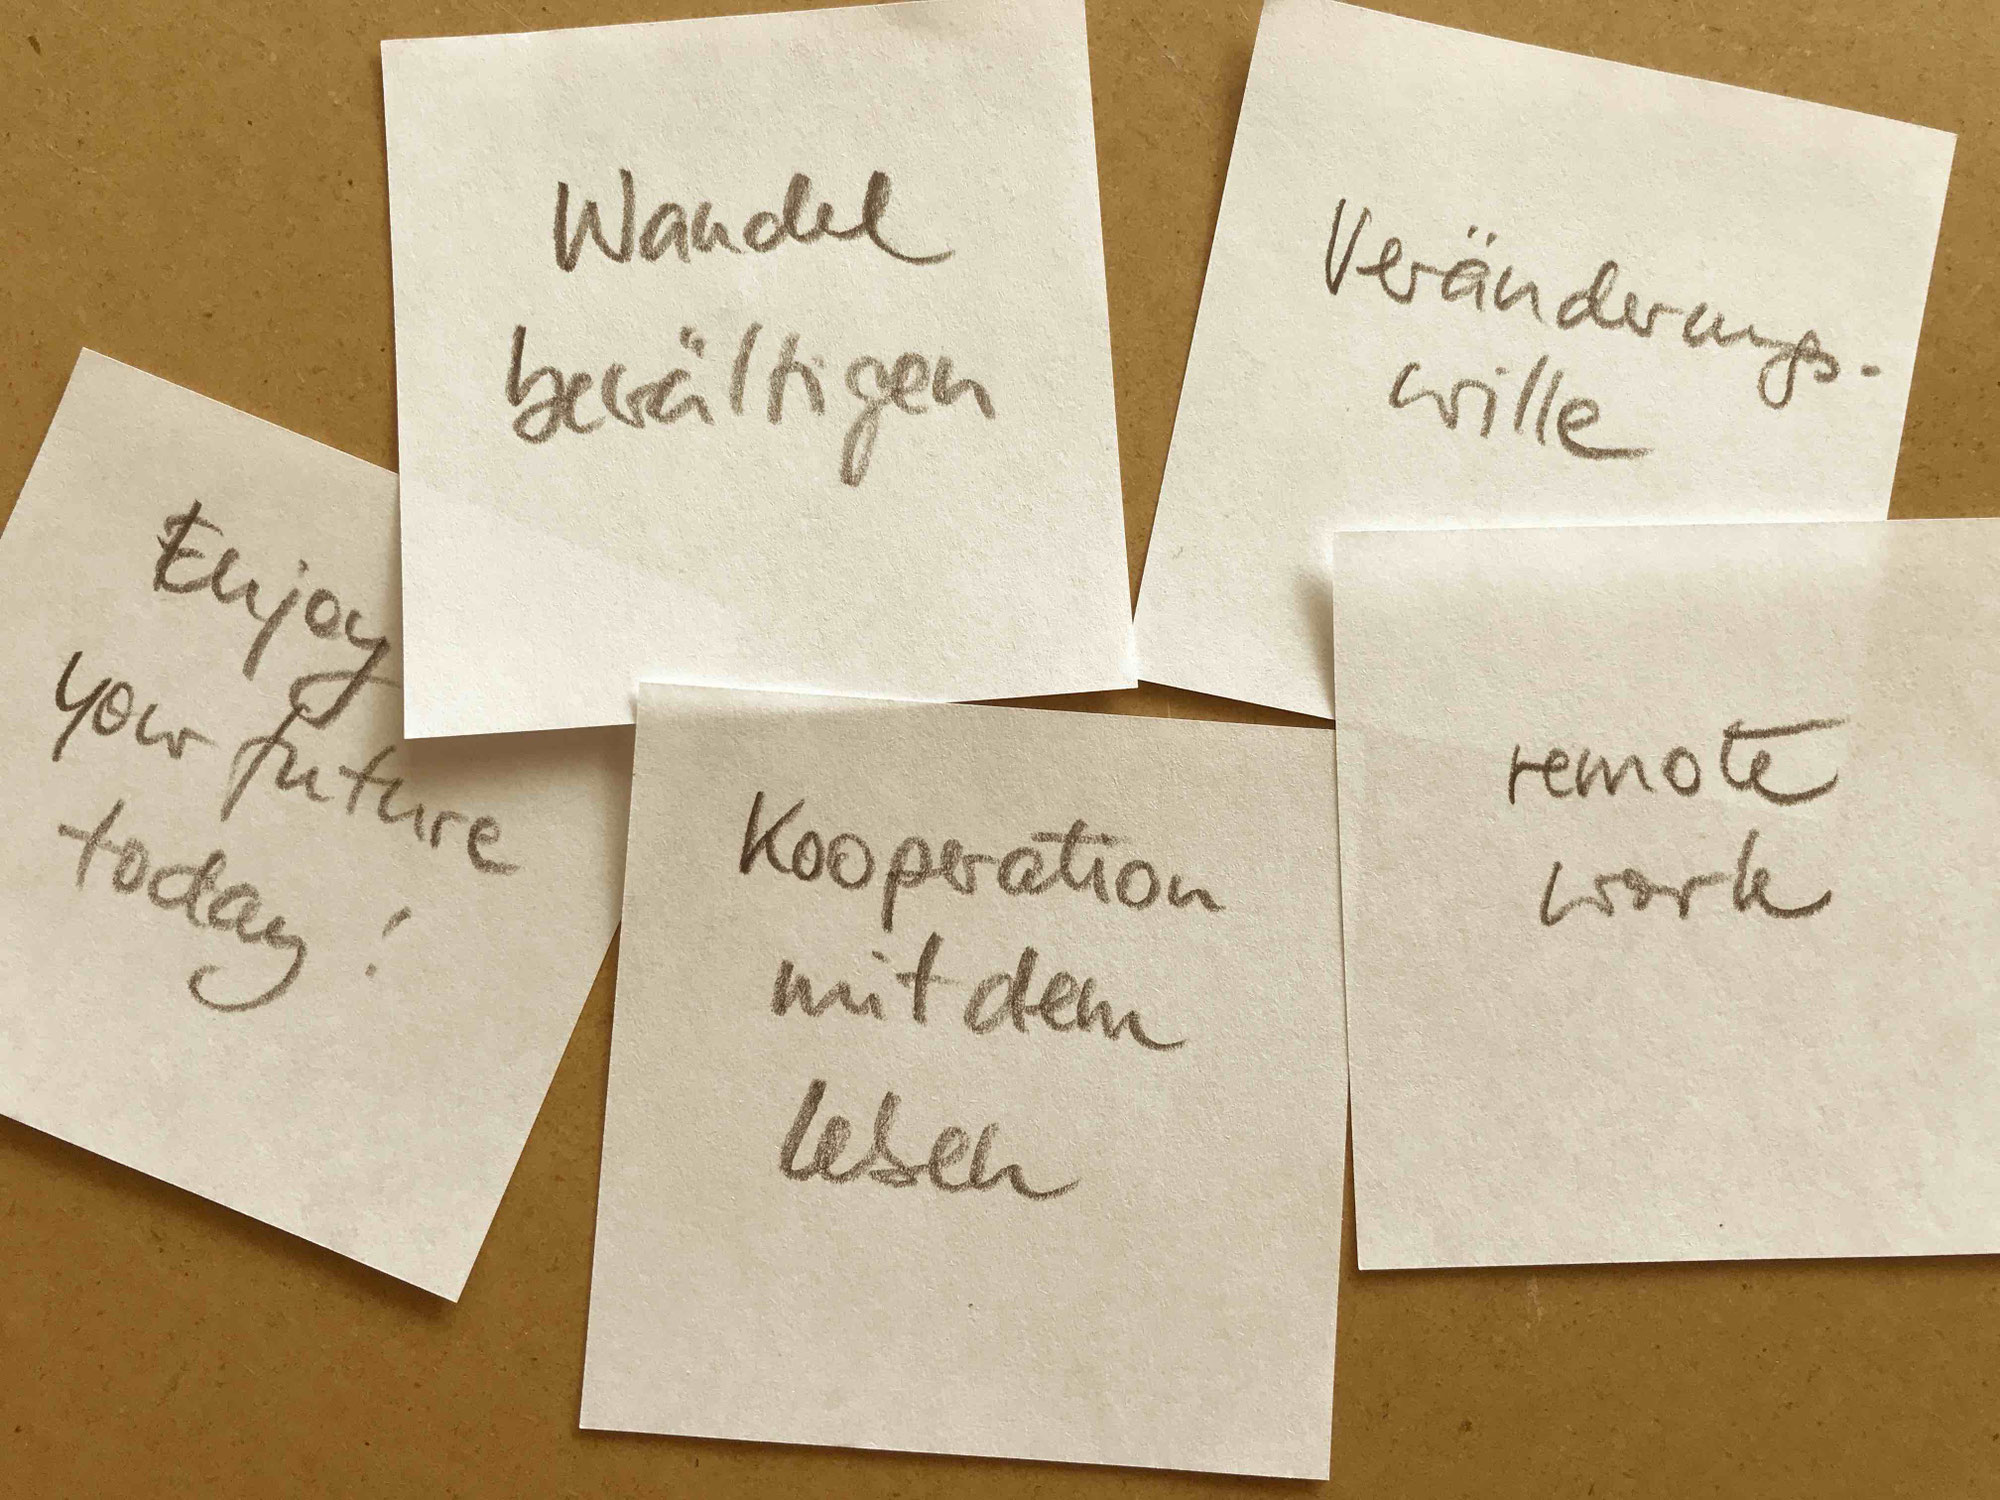 Wandel
bewältigen
Veränderungs-
wille
Enjoy
your future
today!
Kooperation
mit dem
Leben
remote
work